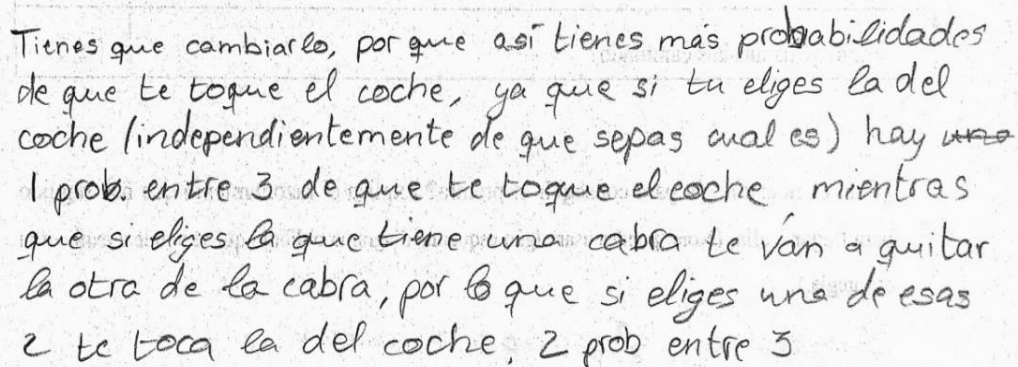 Tienes que cambiarlo, por que así tienes más probabilidades
de que te toque el coche, ya que si tu eliges la del
coche (independientemente de que sepas cual es) hay uno
1 prob. entre 3 de que te toque el coche mientras
que si eliges la que tiene una cabra te ván a quitar
la otra de la cabra, por lo que si eliges una de esas
2 te toca la del coche. 2 prob entre 3